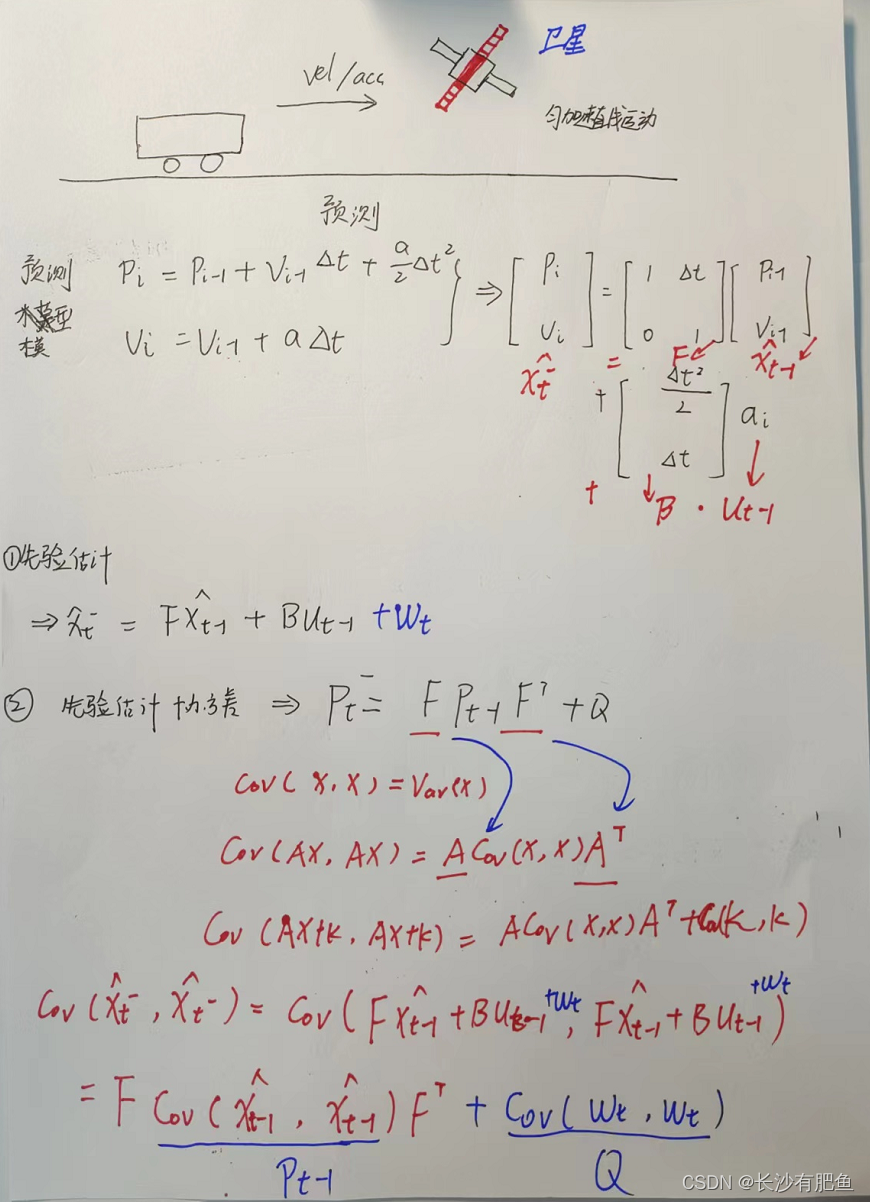 卫星
vel/acc
匀加速直线运动
预测
预测
模型
模
Pi = Pi-1 + Vi-1 Δt + a/2 Δt²
Vi = Vi-1 + a Δt
} ⇒ [Pi Vi] = [1 Δt 0 1] [Pi-1 Vi-1]
X̂t⁻ = F X̂t-1
+ [Δt²/2 Δt] ai
+ B · Ut-1
①先验估计
⇒ x̂t⁻ = FX̂t-1 + BUt-1 +Wt
② 先验估计协方差 ⇒ Pt⁻ = F Pt-1 Fᵀ + Q
Cov(X, X) = Var(X)
Cov(AX, AX) = A Cov(X, X) Aᵀ
Cov(AX+k, AX+k) = ACov(X,X)Aᵀ + Cov(k, k)
Cov(X̂t⁻, X̂t⁻) = Cov(FX̂t-1 + BUt-1 +Wt, FX̂t-1 + BUt-1 +Wt)
= F Cov(X̂t-1, X̂t-1) Fᵀ + Cov(Wt, Wt)
Pt-1 Q
CSDN @长沙有肥鱼